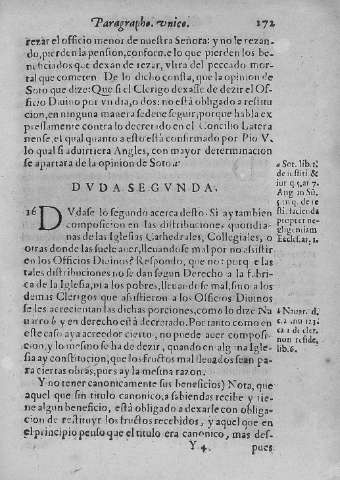 Paragrapho. vnico. 272
rezar el officio menor de nuestra Señora: y no le rezan-
do, pierden la pension, conforme lo que pierden los be-
neficiados que dexan de rezar, vltra del peccado mor-
tal que cometen. De lo dicho consta, que la opinion de
Soto que dize: Que si el Clerigo dexasse de dezir el Of-
ficio Diuino por vn dia, o dos: no està obligado a restitu-
cion, en ninguna manera se deue seguir, porque habla ex
pressamente contra lo decretado en el Concilio Latera
nense, el qual quanto a esto està confirmado por Pio V.
lo qual si aduirtiera Angles, con mayor determinacion
se apartara de la opinion de Soto. a
a Sot. lib. 2.
de iustiti &
iur q. 5. ar. 7.
Ang. in
q. de re
sti. facienda
propter ne-
gligentiam
Eccles. ar. 1.
DVDA SEGVNDA.
16 DVdase lo segundo acerca desto. Si ay tambien
composicion en las distribuciones quotidia
nas de las Iglesias Cathedrales, Collegiales, o
otras donde las suele auer, lleuandose mal por no assistir
en los Officios Diuinos? Respondo, que no: porque las
tales distribuciones no se dan segun Derecho a la fabri-
ca de la Iglesia, ni a los pobres, lleuandose mal, sino a los
demas Clerigos que assistieron a los Officios Diuinos
se les acrecientan las dichas porciones, como lo dize Na
uarro b y en derecho està decretado. Por tanto como en
este caso aya acreedor cierto, no puede auer composi-
cion, y lo mesmo se ha de dezir, quando en alguna Igle-
sia ay constitucion, que los fructos mal lleuados sean pa-
ra ciertas obras, pues ay la mesma razon.
b Nauar. d.
non reside,
lib. 6.
Y no tener canonicamente sus beneficios) Nota, que
aquel que sin titulo canonico, a sabiendas recibe y tie-
ne algun beneficio, està obligado a dexarle con obliga-
cion de restituyr los fructos recebidos, y aquel que en
el principio penso que el titulo era canonico, mas des-
Y 4. pues